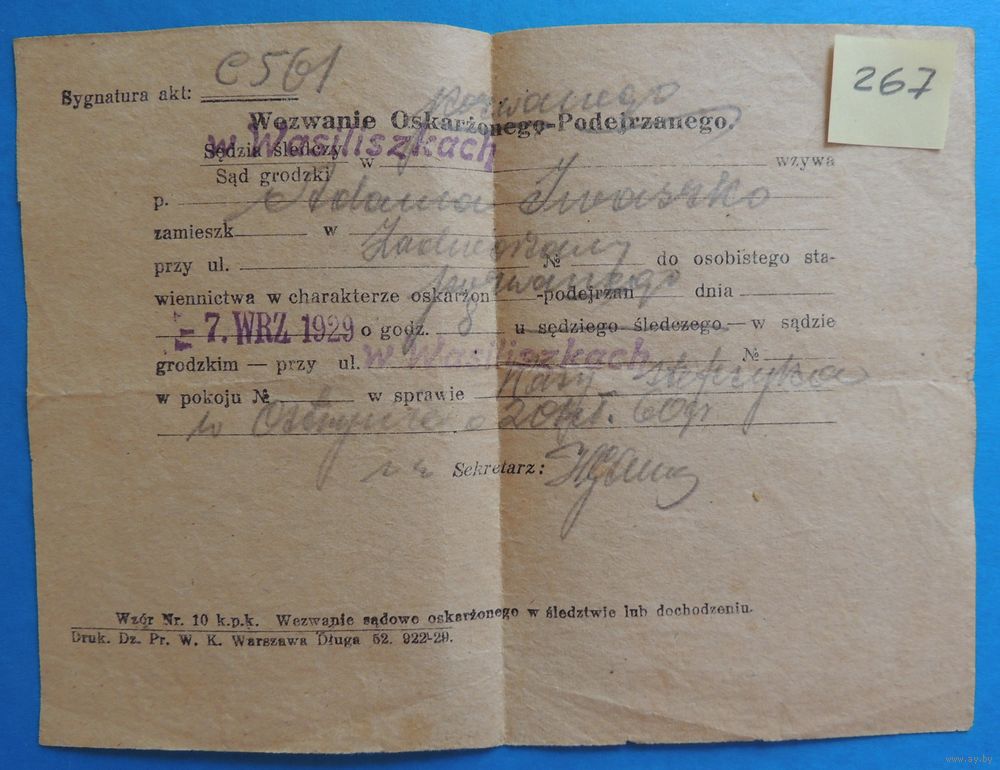 267
Sygnatura akt: C 561
pozwanego
Wezwanie Oskarżonego-Podejrzanego.
w Wasiliszkach
Sędzia śledczy w wzywa
Sąd grodzki
p. Adama Iwaszko
zamieszk w
przy ul. № do osobistego sta-
pozwanego
wiennictwa w charakterze oskarżon -podejrzan dnia
7. WRZ 1929 o godz. 8 u sędziego śledczego — w sądzie
w Wasiliszkach
grodzkim — przy ul. №
w pokoju № w sprawie Kasy
w o 20 zł. 60 gr
Sekretarz:
Wzór Nr. 10 k.p.k. Wezwanie sądowe oskarżonego w śledztwie lub dochodzeniu.
Druk. Dz. Pr. W. K. Warszawa Długa 52. 922-29.
www.ay.by